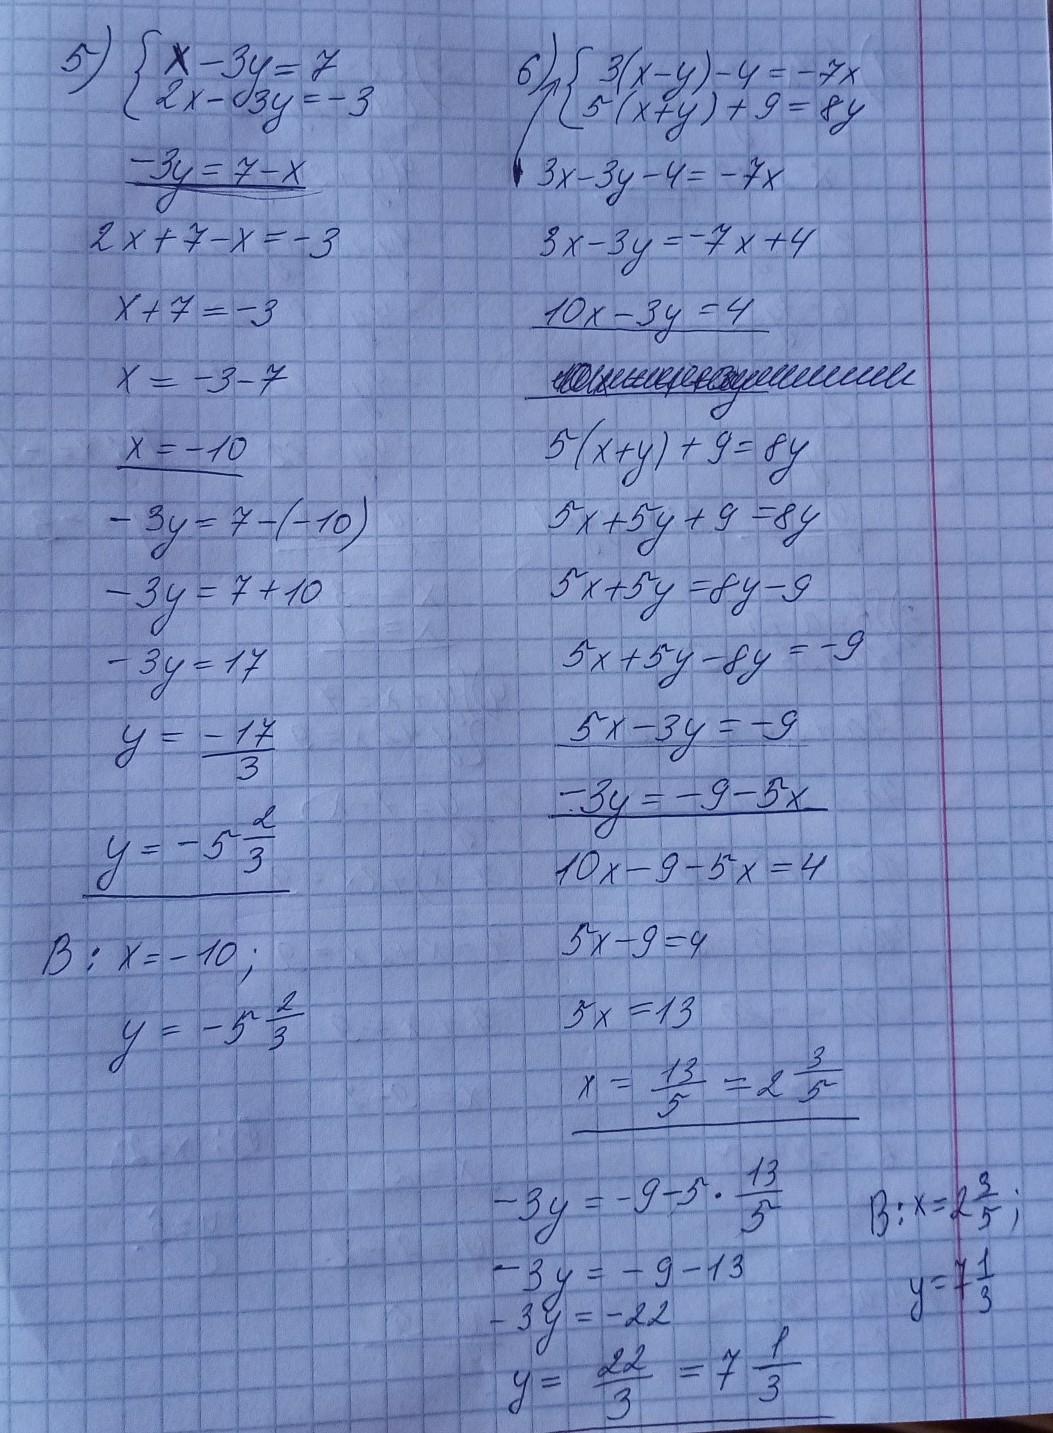 5) { x - 3y = 7
2x - 3y = -3
-3y = 7 - x
2x + 7 - x = -3
x + 7 = -3
x = -3 - 7
x = -10
-3y = 7 - (-10)
-3y = 7 + 10
-3y = 17
y = -17/3
y = -5 2/3
В: x = -10;
y = -5 2/3
6) { 3(x - y) - 4 = -7x
5(x + y) + 9 = 8y
3x - 3y - 4 = -7x
3x - 3y = -7x + 4
10x - 3y = 4
5(x + y) + 9 = 8y
5x + 5y + 9 = 8y
5x + 5y = 8y - 9
5x + 5y - 8y = -9
5x - 3y = -9
-3y = -9 - 5x
10x - 9 - 5x = 4
5x - 9 = 4
5x = 13
x = 13/5 = 2 3/5
-3y = -9 - 5 · 13/5
-3y = -9 - 13
-3y = -22
y = 22/3 = 7 1/3
В: x = 2 3/5;
y = 7 1/3